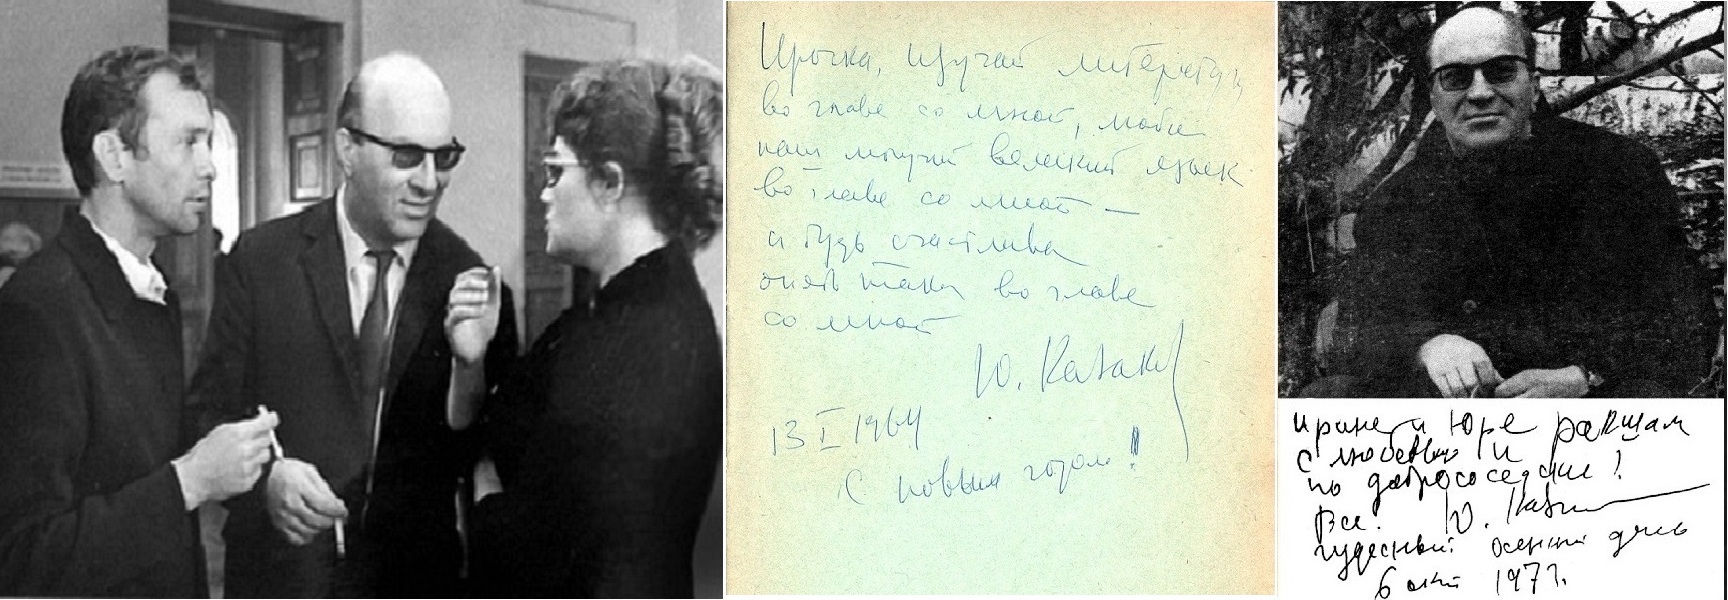 Ирочка, изучай литературу
во главе со мной, люби
наш могучий великий язык
во главе со мной —
и будь счастлива
опять таки во главе
со мной
Ю. Казаков
13 I 1964
С новым годом!
Ирине и Юре Ракшам
с любовью и
по добрососедски!
Все. Ю. Каза
чудесный осенний день
6 окт 1973.